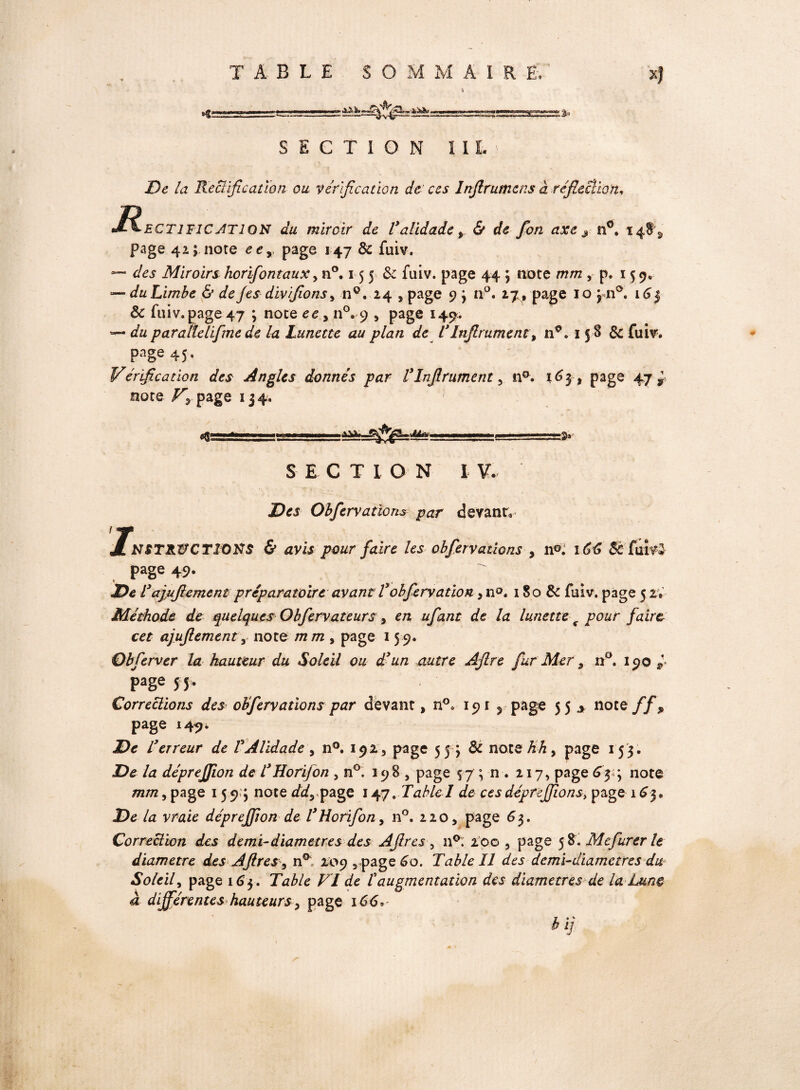 TABLE SOMMAIRE. xj
SECTION III.
De la Rectification ou vérification de ces Inſtrumens à réflection.
RECTIFICATION du miroir de l'alidade, & de ſon axe, n°. 148,
page 42; note ee, page 147 & ſuiv.
— des Miroirs horiſontaux, n°. 155 & ſuiv. page 44; note mm, p. 159.
— du Limbe & de ſes diviſions, n°. 24, page 9; n°. 27, page 10; n°. 163
& ſuiv. page 47; note ee, n°. 9, page 149.
— du paralleliſme de la Lunette au plan de l'Inſtrument, n°. 158 & ſuiv.
page 45.
Vérification des Angles donnés par l'Inſtrument, n°. 163, page 47;
note V, page 134.
SECTION IV.
Des Obſervations par devant.
INSTRUCTIONS & avis pour faire les obſervations, n°. 166 & ſuiv.
page 49.
De l'ajuſlement préparatoire avant l'obſervation, n°. 180 & ſuiv. page 52.
Méthode de quelques Obſervateurs, en uſant de la lunette pour faire
cet ajuſlement, note mm, page 159.
Obſerver la hauteur du Soleil ou d'un autre Aſtre ſur Mer, n°. 190;
page 55.
Corrections des obſervations par devant, n°. 191, page 55, note ff,
page 149.
De l'erreur de l'Alidade, n°. 192, page 55; & note hh, page 153.
De la dépreſſion de l'Horiſon, n°. 198, page 57; n. 217, page 63; note
mm, page 159; note dd, page 147. Table I de ces dépreſſions, page 163.
De la vraie dépreſſion de l'Horiſon, n°. 220, page 63.
Correction des demi-diametres des Aſtres, n°. 200, page 58. Meſurer le
diametre des Aſtres, n°. 209, page 60. Table II des demi-diametres du
Soleil, page 163. Table VI de l'augmentation des diametres de la Lune
à différentes hauteurs, page 166.
b ij